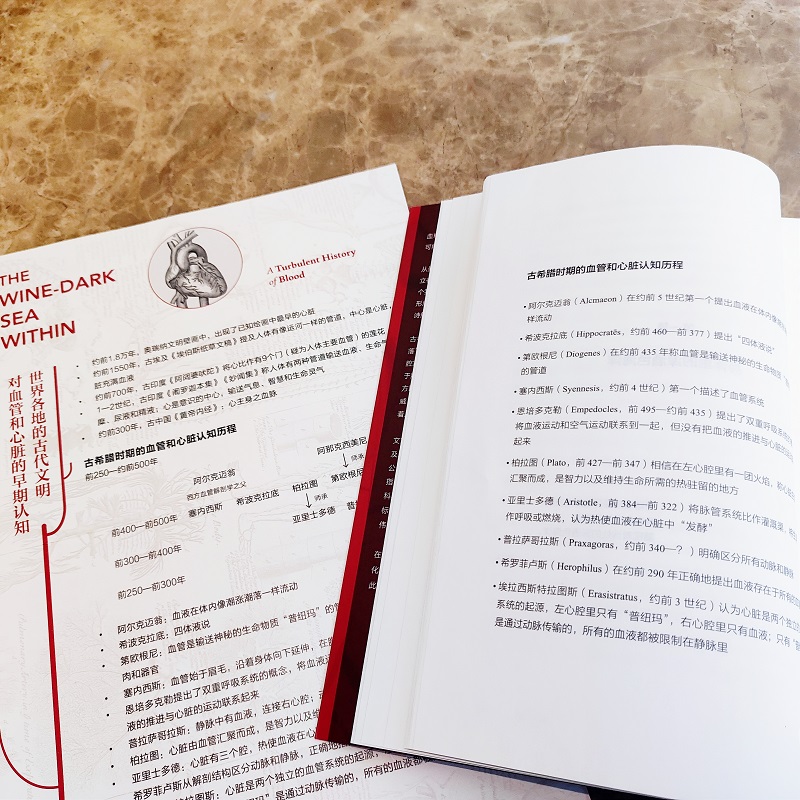 THE
WINE-DARK
SEA
WITHIN
A Turbulent History
of Blood
世界各地的古代文明
对血管和心脏的早期认知
约前1.8万年，奥瑞纳文明壁画中，出现了已知绘画中最早的心脏
约前1550年，古埃及《埃伯斯纸草文稿》提及人体有像运河一样的管道，中心是心脏，
脏充满血液
约前700年，古印度《阿闼婆吠陀》将心比作有9个门（疑为人体主要血管）的莲花
1—2世纪，古印度《阇罗迦本集》《妙闻集》称人体有两种管道输送血液、生命气
糜、尿液和精液；心是意识的中心，输送气息、智慧和生命灵气
约前300年，古中国《黄帝内经》：心主身之血脉
古希腊时期的血管和心脏认知历程
前250—约前500年
阿尔克迈翁
西方血管解剖学之父
塞内西斯
希波克拉底
柏拉图
↓师承
亚里士多德
阿那克西美尼
↓师承
第欧根尼
前400—前500年
前300—前400年
前250—前300年
• 阿尔克迈翁：血液在体内像潮涨潮落一样流动
• 希波克拉底：四体液说
• 第欧根尼：血管是输送神秘的生命物质“普纽玛”的管
肉和器官
• 塞内西斯：血管始于眉毛，沿着身体向下延伸，在
• 恩培多克勒提出了双重呼吸系统的概念，将血液
液的推进与心脏的运动联系起来
• 普拉萨哥拉斯：静脉中有血液，连接右心腔；
• 柏拉图：心脏由血管汇聚而成，是智力以及维
• 亚里士多德：心脏有三个腔，热使血液在心
• 希罗菲卢斯从解剖结构区分动脉和静脉，正确地
拉图斯：心脏是两个独立的血管系统的起源，
是通过动脉传输的，所有的血液都
古希腊时期的血管和心脏认知历程
• 阿尔克迈翁（Alcmaeon）在约前 5 世纪第一个提出血液在体内像潮
样流动
• 希波克拉底（Hippocrates，约前 460—前 377）提出“四体液说”
• 第欧根尼（Diogenes）在约前 435 年称血管是输送神秘的生命物质
的管道
• 塞内西斯（Syennesis，约前 4 世纪）第一个描述了血管系统
• 恩培多克勒（Empedocles，前 495—约前 435）提出了双重呼吸系
将血液运动和空气运动联系到一起，但没有把血液的推进与心脏的
起来
• 柏拉图（Plato，前 427—前 347）相信在左心腔里有一团火焰，
汇聚而成，是智力以及维持生命所需的热驻留的地方
• 亚里士多德（Aristotle，前 384—前 322）将脉管系统比作灌溉渠，
作呼吸或燃烧，认为热使血液在心脏中“发酵”
• 普拉萨哥拉斯（Praxagoras，约前 340—？）明确区分所有动脉和静脉
• 希罗菲卢斯（Herophilus）在约前 290 年正确地提出血液存在于所有
• 埃拉西斯特拉图斯（Erasistratus，约前 3 世纪）认为心脏是两个独立
系统的起源，左心腔里只有“普纽玛”，右心腔里只有血液；只有
是通过动脉传输的，所有的血液都被限制在静脉里